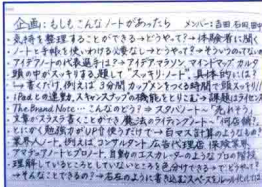 企画:もしもこんなノートがあったら メンバー:吉田 石田 里中
・気持を整理することができる→どうやって?→体験者に聞く
・ノートと手帳を使いわける必要なし→どうやって?→そういうのってないの
アイデアノートの代表選手は?→アイデアマラソン マインドマップ カルタ
頭の中がスッキリする 題して"スッキリノート" 具体的には?
→書くだけ。例えば 3分間 カップメンをつくる時間で頭スッキリ
iPadとの連動、スキャンスナップの機能をとりこむ→課題はライセンス
The Brand Note…こんなのどう?→スタバノート
文章がスラスラ書くことができる魔法のライティングノート
とにかく勉強がUP する 使うだけで→百マス計算のようなもの?
業界人ノート。例えばコンサルタント 広告代理店 保険業界
アマチュアノートとプロノート。自動車のエスカレーターのようなプロの階段
理解しているところとしていないところを色分けできる→どうやって?
→そんなことできるの?→右左のように書き込むスペース